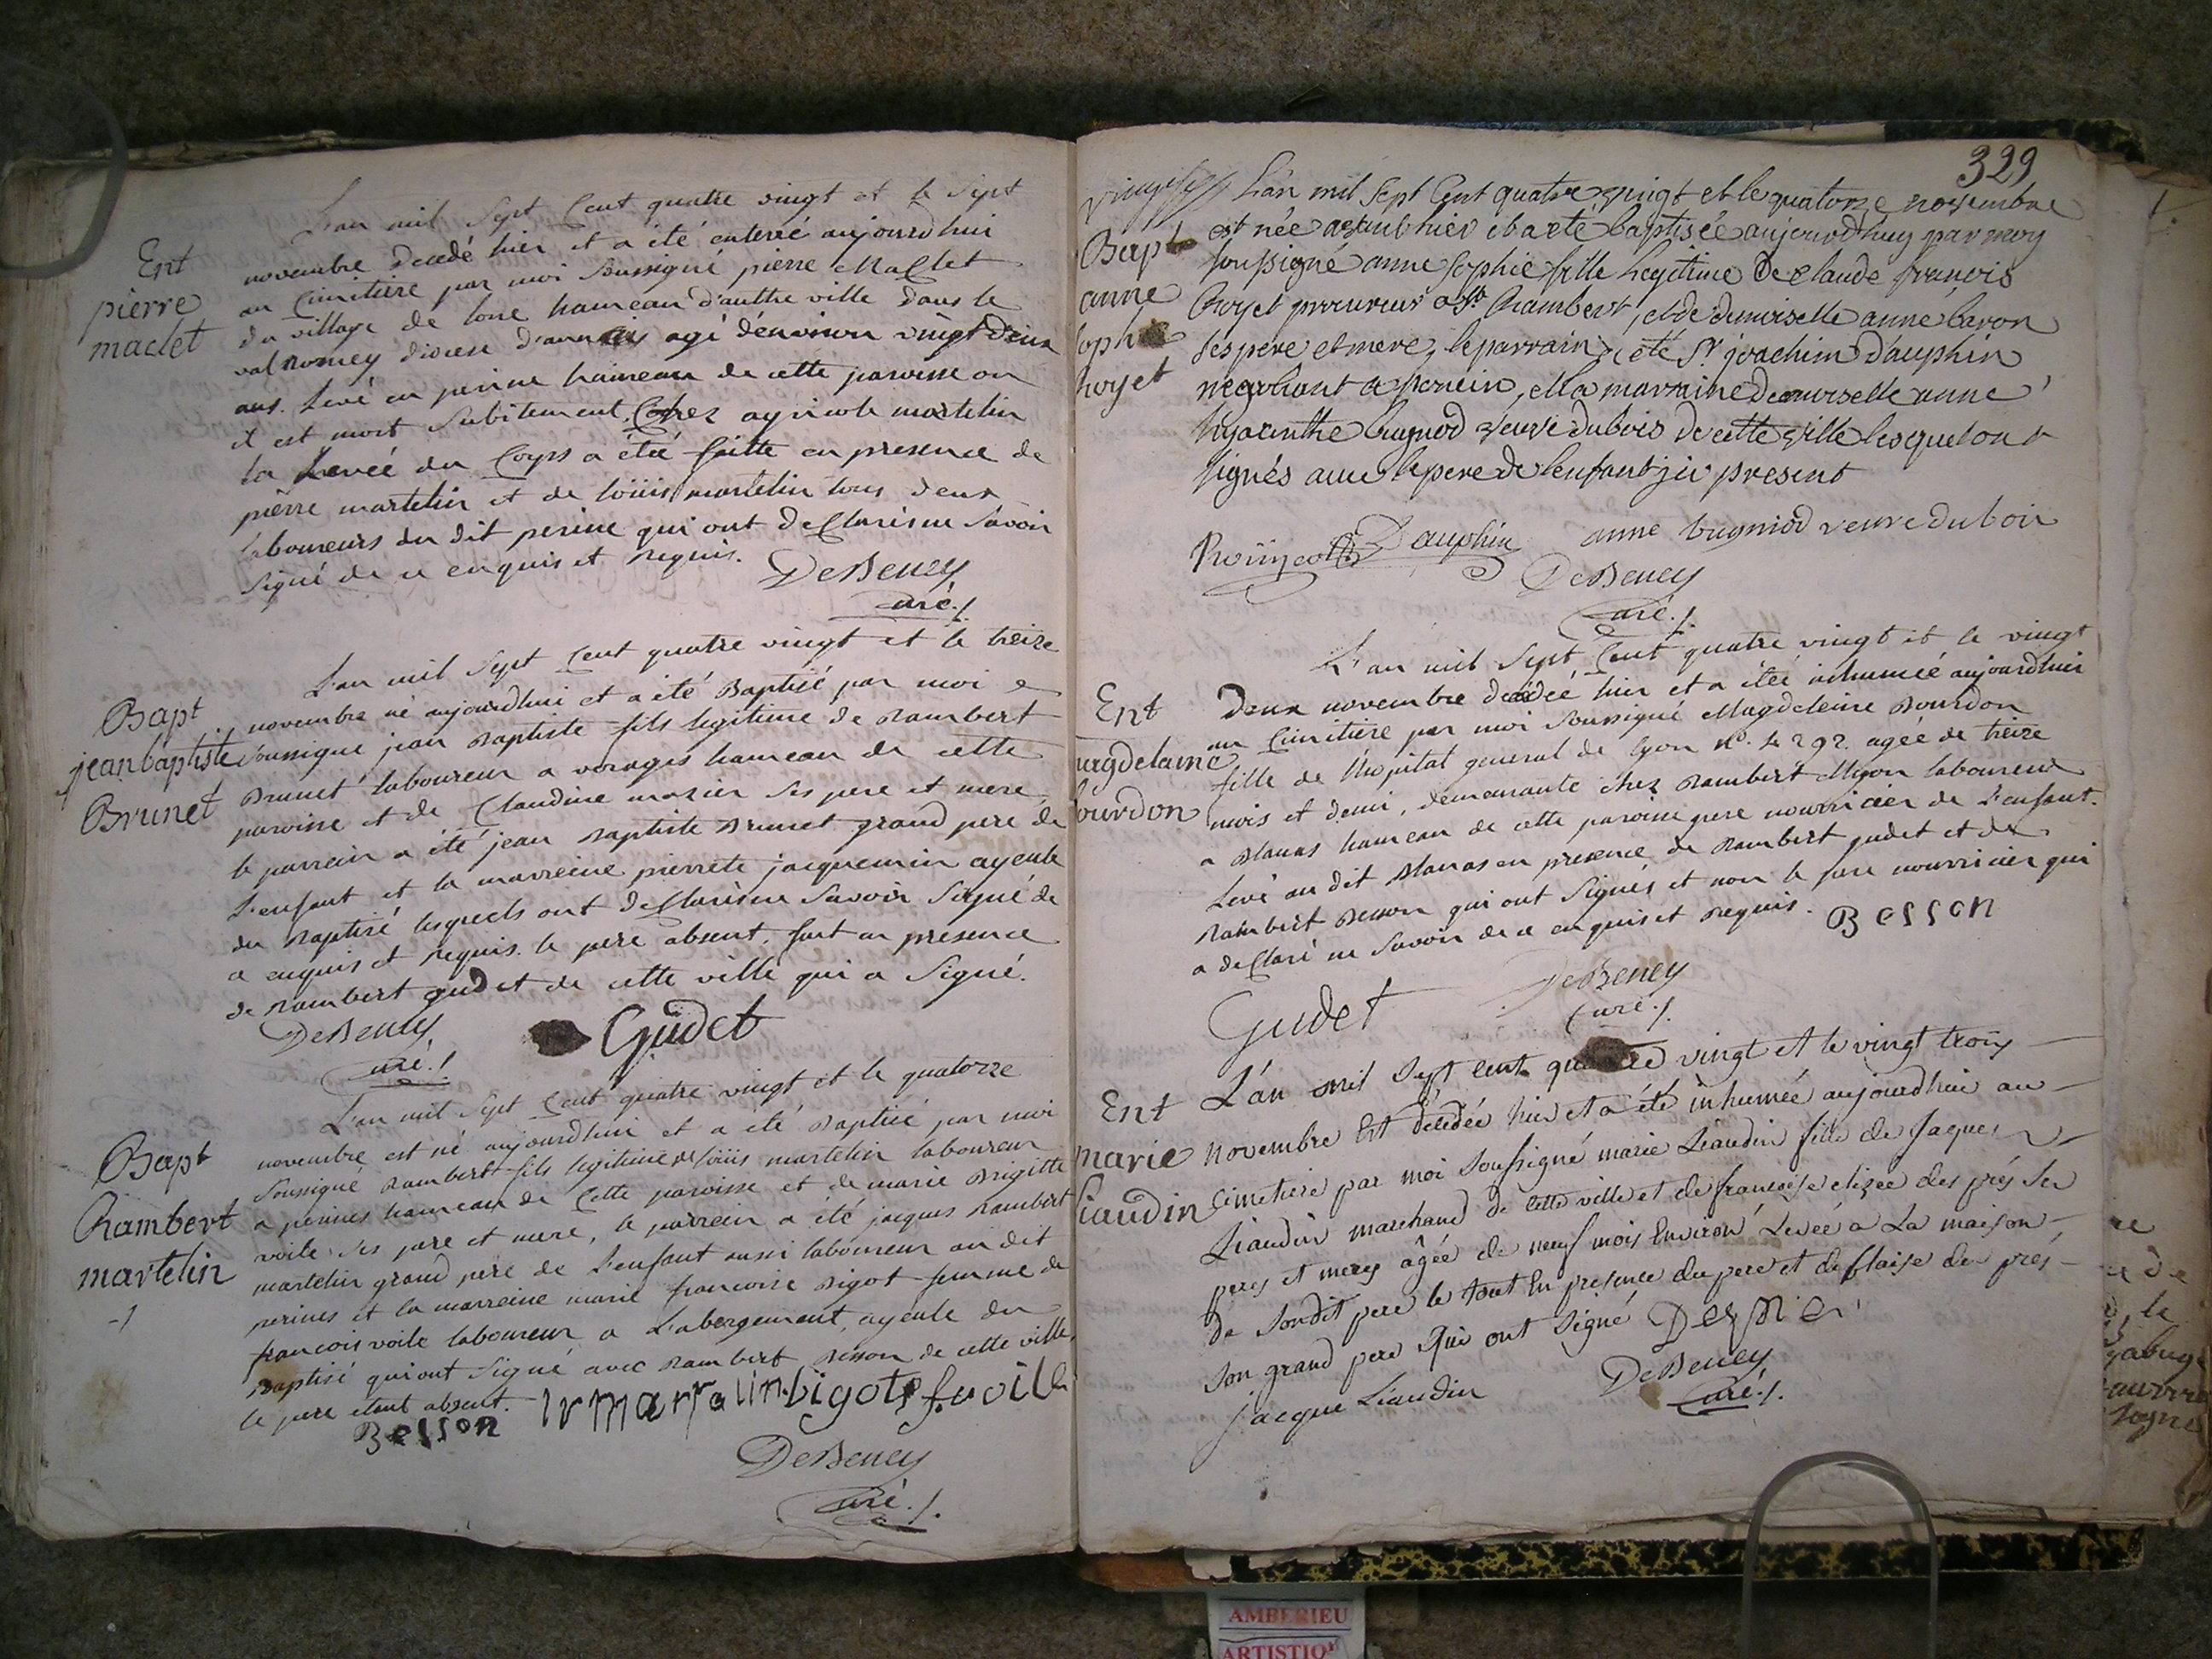 Ent
pierre
maclet
L'an mil Sept Cent quatre vingt et le Sept
novembre decedé hier et a été enterré aujourdhui
au Cimitiere par moi Soussigné pierre Maclet
du village de lone hameau d'autre ville dans le
val Romey diocese d'annecy agé d'environ vingt deux
ans. Levé en perine hameau de cette paroisse ou
il est mort Subitement, Chez agricole martelin
la Levée du Corps a été faitte en presence de
pierre martelin et de loüis martelin tous deux
laboureurs du dit perine qui ont declarés ne Savoir
Signé de ce enquis et requis. DeBeney
Curé./.
Bapt
jean baptiste
Brunet
L'an mil Sept Cent quatre vingt et le treize
novembre né aujourdhui et a été Baptisé par moi
Soussigné jean Baptiste fils legitime de Rambert
Brunet laboureur a vorages hameau de cette
paroisse et de Claudine mazier Ses pere et mere,
le parrain a été jean Baptiste Brunet grand pere de
L'enfant et la marreine pierrete jacquemin ayeule
du Baptisé lesquels ont declarés ne Savoir Signé de
ce enquis et requis. le pere absent, fait en presence
de Rambert gudet de cette ville qui a Signé.
DeBeney Gudet
Curé./.
Bapt
Rambert
martelin
L'an mil Sept Cent quatre vingt et le quatorze
novembre est né aujourdhui et a été Baptisé par moi
Soussigné Rambert fils legitime de loüis martelin laboureur
a perines hameau de Cette paroisse et de marie Brigitte
voile Ses pere et mere, le parrein a été jacques Rambert
martelin grand pere de L'enfant aussi laboureur au dit
perines et la marreine marie francoise Bigot femme de
francois voile laboureur a L'abergement, ayeule du
Baptisé qui ont Signé avec Rambert Besson de cette ville,
le pere etant absent.
Besson bigot f. voile
DeBeney
Curé./.
329
Bapt
anne
Sophie
Royet
L'an mil Sept Cent quatre vingt et le quatorze novembre
est née avant hier et a eté baptisée aujourdhuy par moy
Soussigné anne Sophie fille Legitime de Claude francois
Royet procureur a St Rambert, et de demoiselle anne baron
Ses pere et mere, le parrain a été Sr joachim Dauphin
negotiant a poncin, et la marraine demoiselle anne
hyacinthe bugniod veuve dubois de cette ville lesquels ont
signés avec le pere de l'enfant ici present
Dauphin anne bugniod veuve dubois
DeBeney
Curé./.
Ent
magdelaine
bourdon
L'an mil Sept Cent quatre vingt et le vingt
Deux novembre decedée hier et a étée inhumée aujourdhui
au Cimitiere par moi Soussigné Magdeleine Bourdon
fille de l'hopital general de Lyon n°. 4292. agée de treize
mois et demi, demeurante chez Rambert Myon laboureur
a Blanas hameau de cette paroisse pere nourricier de L'enfant.
Levé au dit Blanas en presence de Rambert gudet et de
Rambert Besson qui ont Signés et non le pere nourricier qui
a declaré ne Savoir de ce enquis et requis. Besson
Gudet DeBeney
Curé./.
Ent
marie
Liaudin
L'án mil Sept cent quatre vingt et le vingt troïs
novembre Est decédée hier et a été inhumée aujourdhui au
Cimetiere par moi Soussigné marie Liaudin fille de Jaques
Liaudin marchand de cette ville et de francoise elizee des prés Ses
peres et meres âgée de neuf mois Environ, Levée a La maison
de Sondit pere le tout En presence du pere et de Blaise des prés
Son grand pere Qui ont Signé
jacque Liaudin DeBeney
Curé./.
AMBERIEU